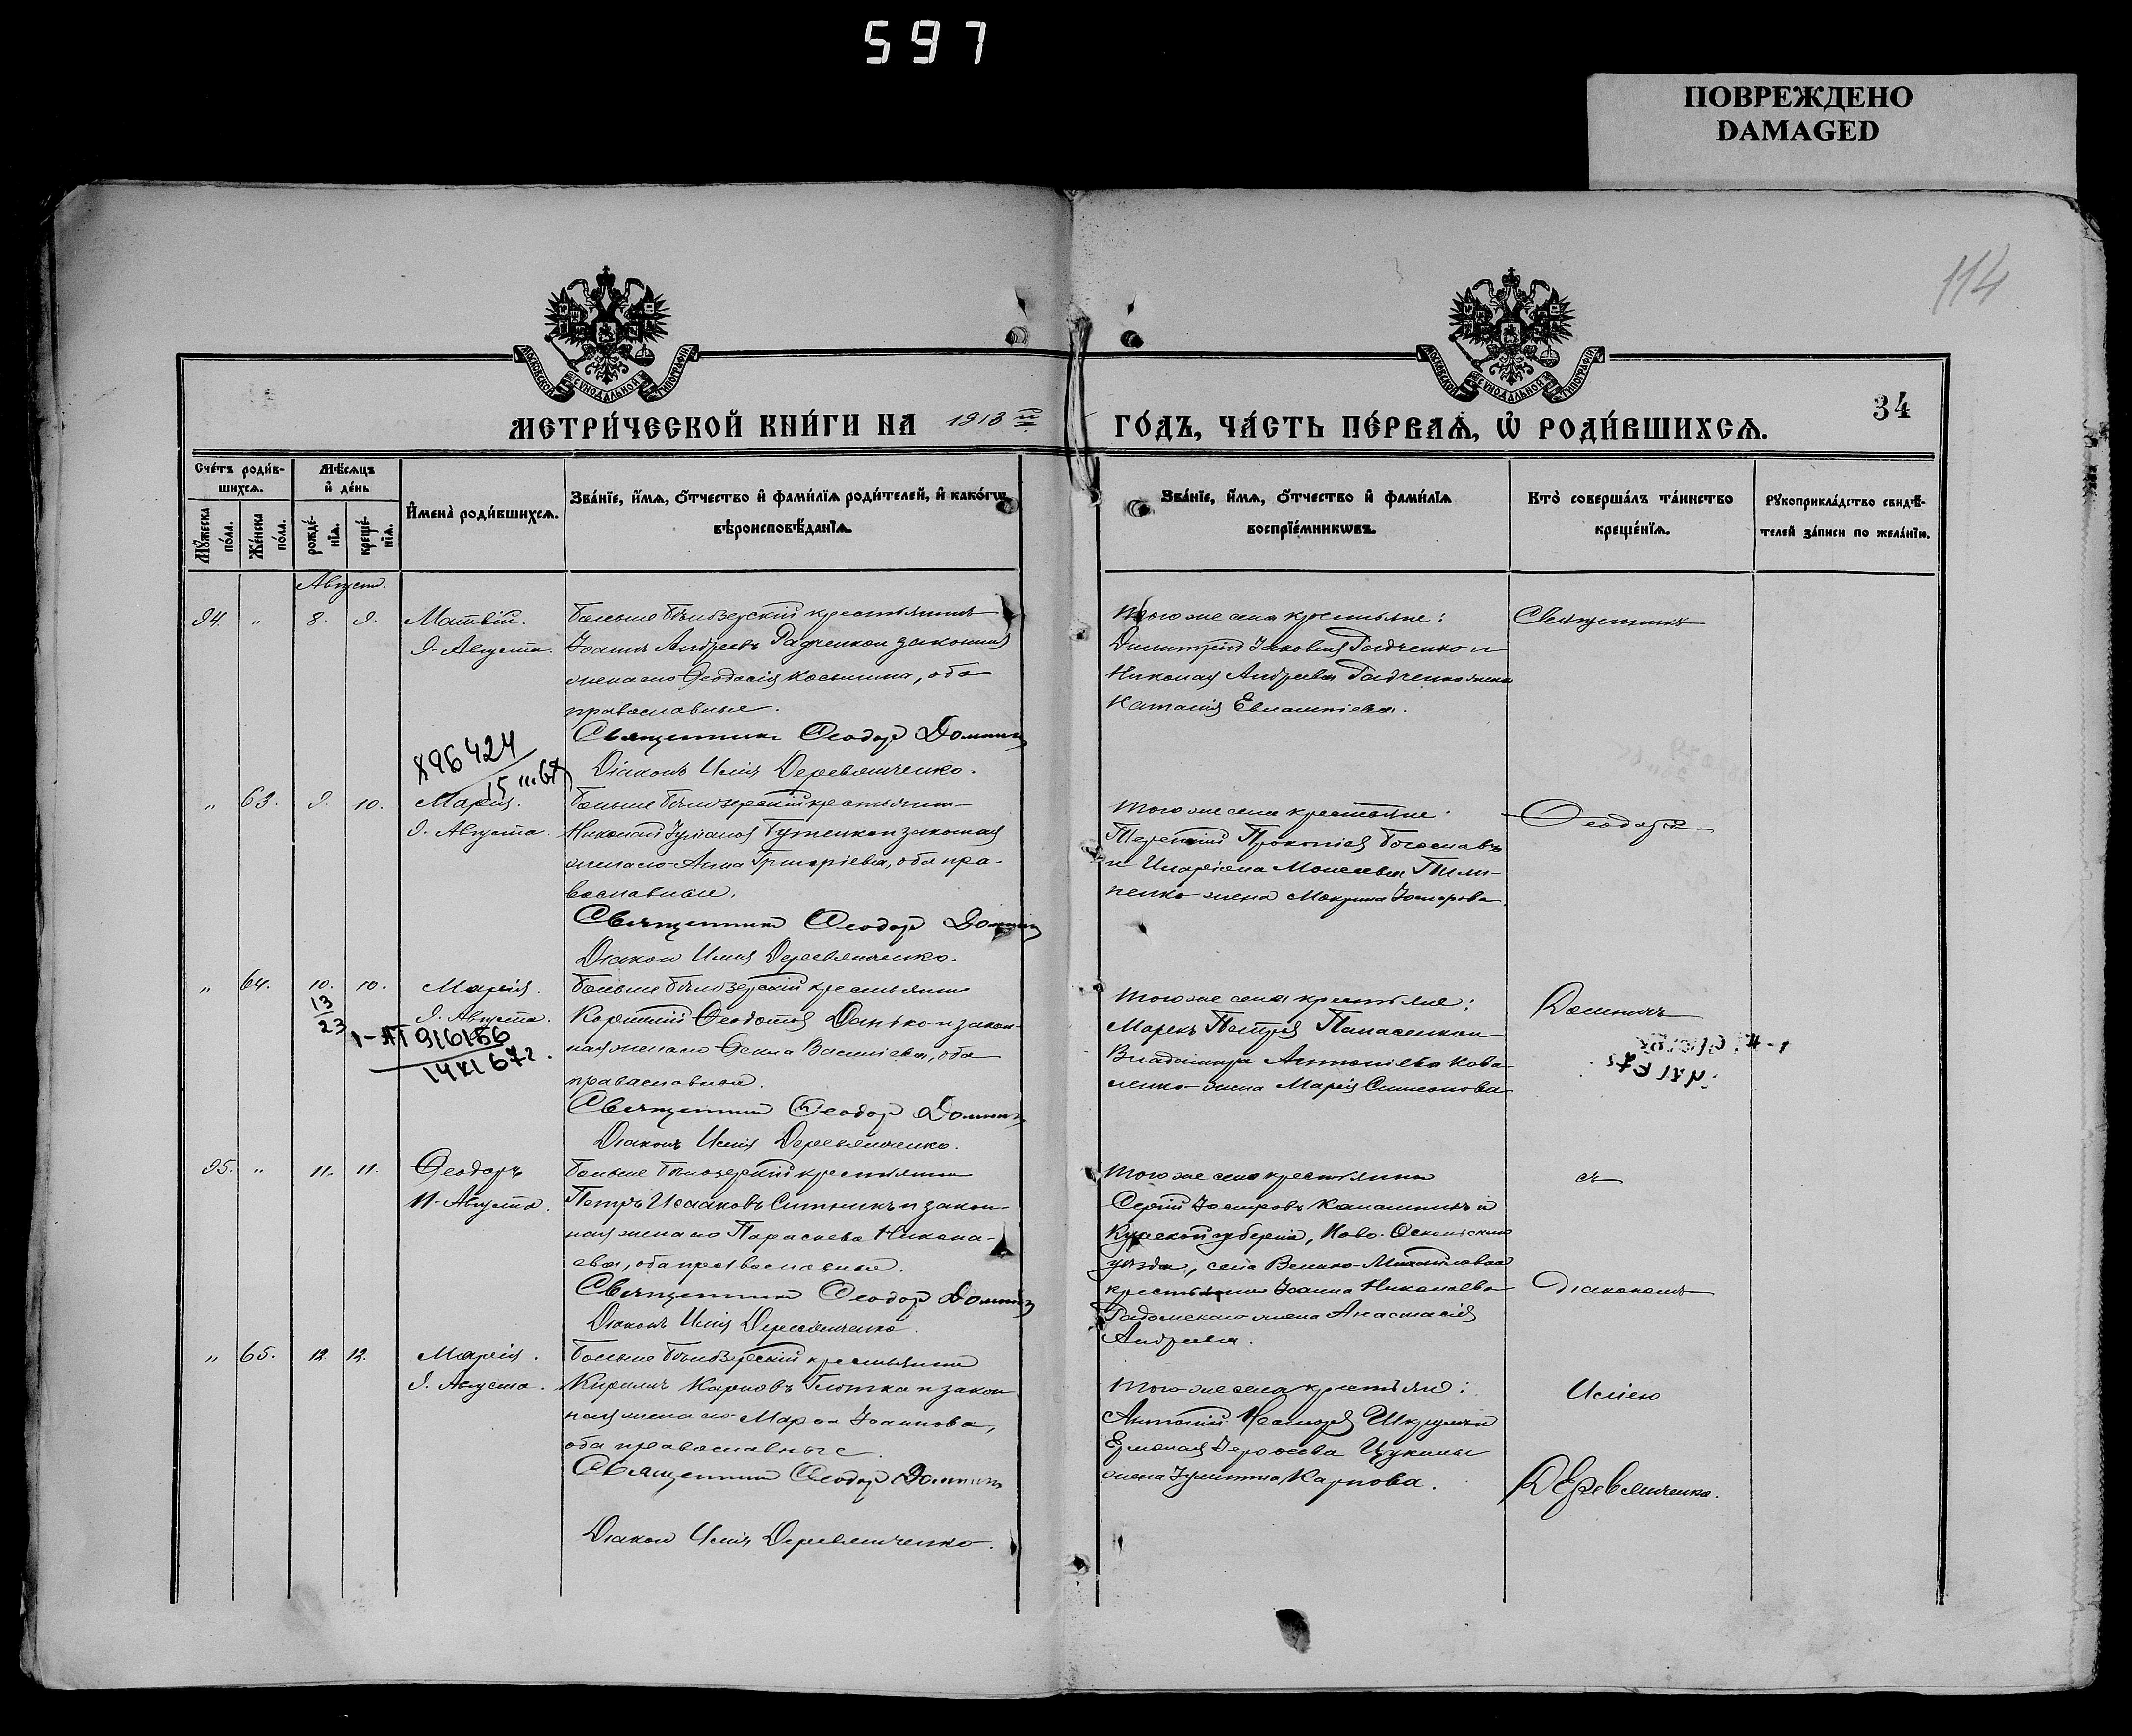 597
ПОВРЕЖДЕНО
DAMAGED
114
34
МОСКОВСКОЙ СѴНОДАЛЬНОЙ ТИПОГРАФІИ
МОСКОВСКОЙ СѴНОДАЛЬНОЙ ТИПОГРАФІИ
МЕТРИ́ЧЕСКОЙ КНИ́ГИ НА 1913 й
ГО́ДЪ, ЧА́СТЬ ПЕ́РВАѦ, Ѡ҆ РОДИ́ВШИХСѦ.
Сче́тъ роди́в-
шихсѧ.
Мꙋ́жеска по́ла.
Же́нска по́ла.
Мѣ́сѧцъ
и҆ де́нь
рожде́-
нїѧ.
креще́-
нїѧ.
И҆мена̀ роди́вшихсѧ.
Зва́нїе, и҆́мѧ, ѻ҆́тчество и҆ фами́лїѧ роди́телей, и҆ како́гѡ
вѣроисповѣ́данїѧ.
Зва́нїе, и҆́мѧ, ѻ҆́тчество и҆ фами́лїѧ
воспрїе́мникѡвъ.
Кто̀ соверша́лъ та́инство
креще́нїѧ.
Рꙋкоприкла́дство свидѣ́-
телей за́писи по жела́нїю.
Августъ.
94. " 8. 9. Матвій.
9. Августа.
Больше Бѣлозерскій крестьянинъ
Іоаннъ Андреевъ Радченко и законная
жена его Ѳеодосія Косьмина, оба
православные.
Священникъ Ѳеодоръ
Діаконъ Илія Деревянченко.
Того же села крестьяне:
Димитрій Іаковлев Радченко и
Николая Андреева Радченко жена
Наталія Евлампіева.
Священникъ
896424
15
" 63. 9. 10. Марія.
9. Августа.
Больше Бѣлозерскій крестьянин
Николай Гуженко и законная
жена его Анна Григоріева, оба пра-
вославные.
Священникъ Ѳеодоръ
Діакон Илія Деревянченко.
Того же села крестьяне:
Терентій Прокопіев Богославъ
и Иларіона Моисеева Пили-
пенко жена Макрина
Ѳеодоръ
" 64. 10. 10. Марія.
9. Августа.
13
23
1-АТ 916156
672.
Больше Бѣлозерскій крестьянин
Ѳеодотов Данько и закон-
ная жена его Ѳекла Василіева, оба
православные.
Священник Ѳеодор
Діаконъ Илія Деревянченко.
Того же села крестьяне:
Маркъ Петров Панасенко и
Владиміра Антоніева Кова-
ленко жена Марія Симеонова
95. " 11. 11. Ѳеодоръ
11. Августа.
Больше Бѣлозерскій крестьянин
Петръ Исааковъ Ситникъ и закон-
ная жена его Параскева Никола-
ева, оба православные.
Священник Ѳеодор
Діаконъ Илія Деревянченко.
Того же села крестьянин
Сергій Калашникъ и
Курской губерніи, Ново-Оскольскаго
уѣзда, села Велико-Михайловки
крестьянина Іоанна Николаева
Радомскаго жена Анастасія
Андреева.
съ
діакономъ
" 65. 12. 12. Марія.
9. Августа.
Больше Бѣлозерскій крестьянин
Кириллъ Карповъ и закон
ная жена его Марѳа Іоаннова,
оба православные
Священник Ѳеодор
Діакон Илія Деревянченко.
Того же села крестьяне:
Антоній
Ермолая
жена Іулитта Карпова.
Иліею
Деревянченко.